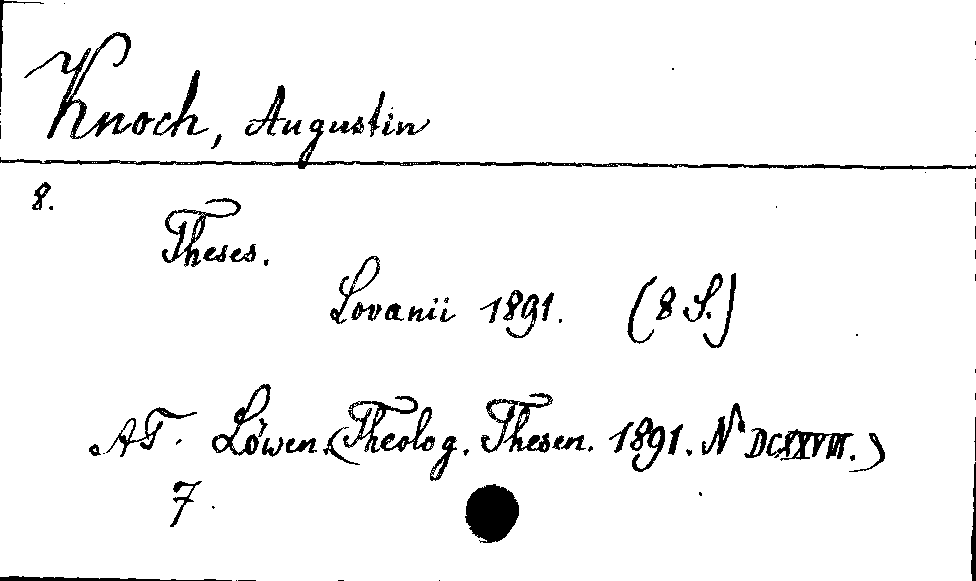 Knoch, Augustin
8.
Theses.
Lovanii 1891. (8 S.)
AT. Löwen. (Theolog. Thesen. 1891. N° DCXXVII.)
7